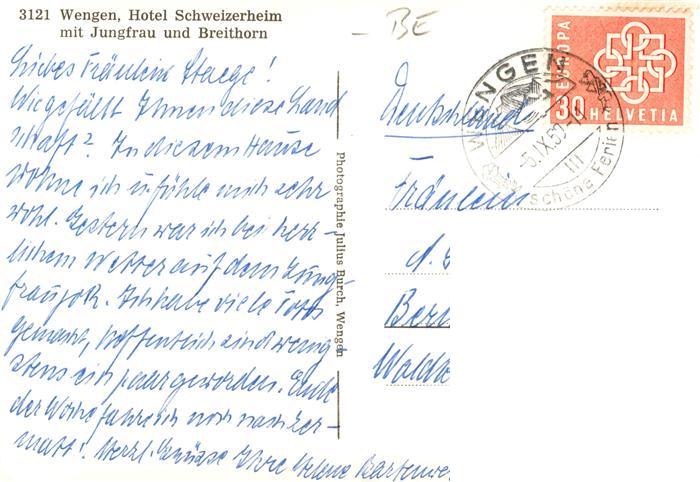 3121 Wengen, Hotel Schweizerheim
mit Jungfrau und Breithorn
BE
Liebes Fräulein Staege!
Wie gefällt Ihnen diese Land
schaft? In diesem Hause
wohne ich u. fühle mich sehr
wohl. Gestern war ich bei herr-
lichem Wetter auf dem Jung-
fraujoch. Ich habe viele Fotos
gemacht, hoffentlich sind wenig
stens ein paar geworden. Ende
der Woche fahre ich noch nach Zer-
matt! Herzl. Grüsse Ihre Helene
Photographie Julius Burch, Wengen
EUROPA
30 HELVETIA
WENGEN
III
schöne Ferien
Deutschland
Fräulein